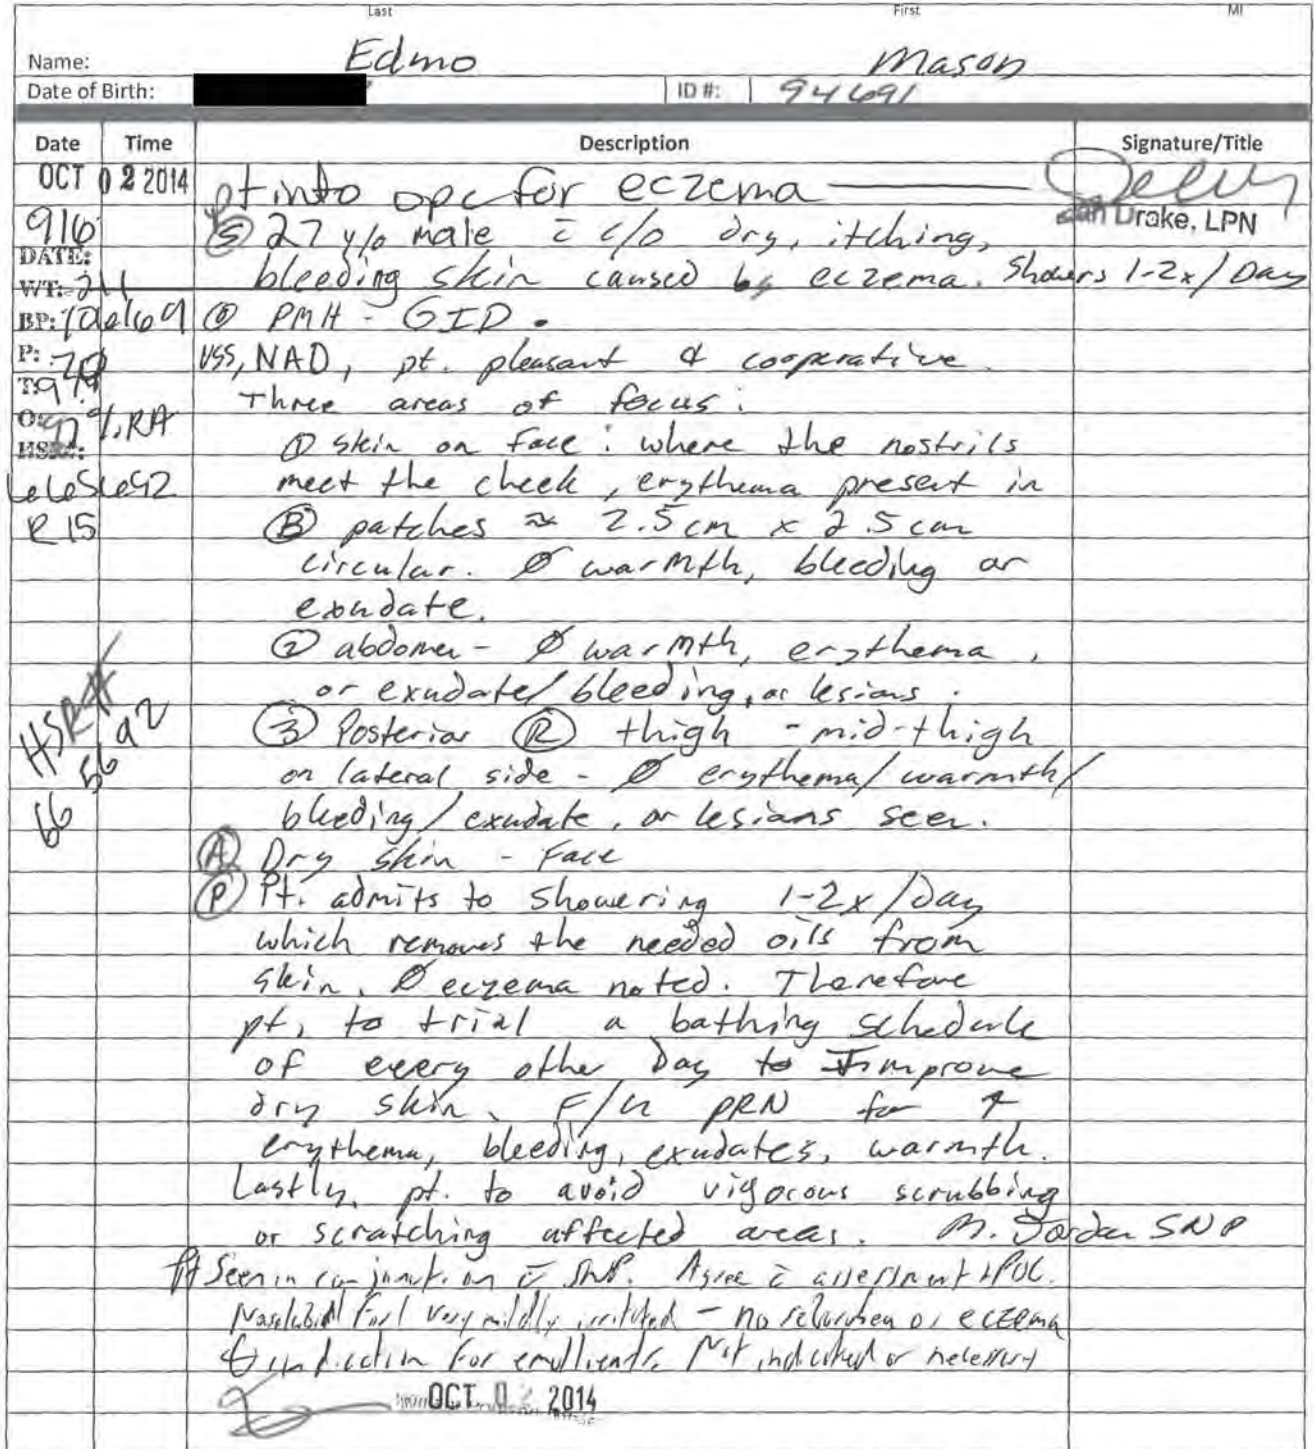 Last First MI
Name: Edmo Mason
Date of Birth: ID #: 94691
Date Time Description Signature/Title
OCT 02 2014 pt into opc for eczema
Drake, LPN
916 Ⓢ 27 y/o male c̄ c/o dry, itching,
DATE:
WT: 211 bleeding skin caused by eczema. Showers 1-2x/Day
BP: Ⓞ PMH - GID.
P: VSS, NAD, pt. pleasant & cooperative
T: Three areas of focus:
O: 97%RA
HSR#: ① skin on face: where the nostrils
meet the cheek, erythema present in
R 15 Ⓑ patches ≈ 2.5 cm x 2.5 cm
circular. Ø warmth, bleeding or
exudate.
② abdomen - Ø warmth, erythema,
or exudate/bleeding, or lesians.
HSR# 66 56 92
③ Posterior Ⓡ thigh - mid-thigh
on lateral side - Ø erythema/warmth/
bleeding/exudate, or lesians seen.
Ⓐ Dry skin - Face
Ⓟ Pt. admits to showering 1-2x/Day
which removes the needed oils from
skin. Ø eczema noted. Therefore
pt. to trial a bathing schedule
of every other Day to improve
dry skin. F/u PRN for ↑
erythema, bleeding, exudates, warmth.
Lastly, pt. to avoid vigorous scrubbing
or scratching affected areas. M. Jordan SNP
Pt Seen in conjunction c̄ SNP. Agree c̄ assessment + POC.
Nasolabial fold very mildly irritated - no or eczema
indication for emollients. Not indicated or necessary
OCT 2014